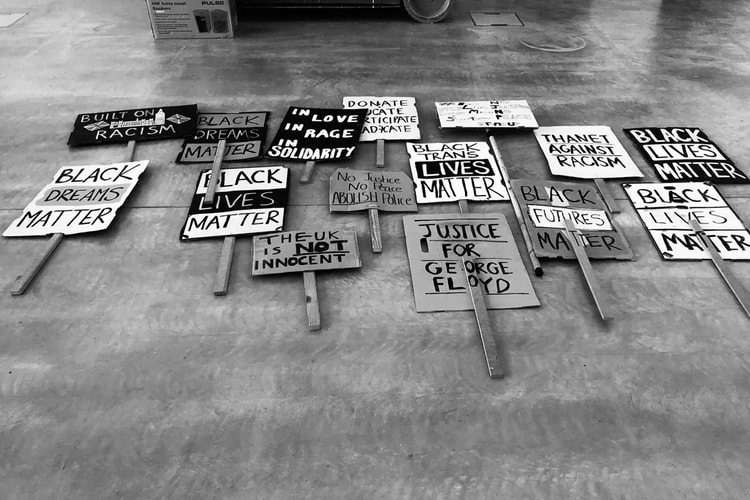 PULSE
BUILT ON
RACISM
BLACK
DREAMS
MATTER
IN LOVE
IN RAGE
IN SOLIDARITY
DONATE
EDUCATE
PARTICIPATE
ADVOCATE
THANET
AGAINST
RACISM
BLACK
LIVES
MATTER
BLACK
DREAMS
MATTER
BLACK
LIVES
MATTER
No Justice
No Peace
ABOLISH POLICE
BLACK
TRANS
LIVES
MATTER
BLACK
FUTURES
MATTER
BLACK
LIVES
MATTER
THE UK
IS NOT
INNOCENT
JUSTICE
FOR
GEORGE
FLOYD